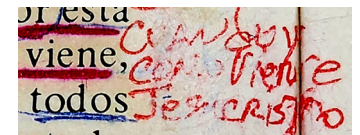 or esta
viene,
todos
CUANDO Y
COMO VIENE
JESUCRISTO